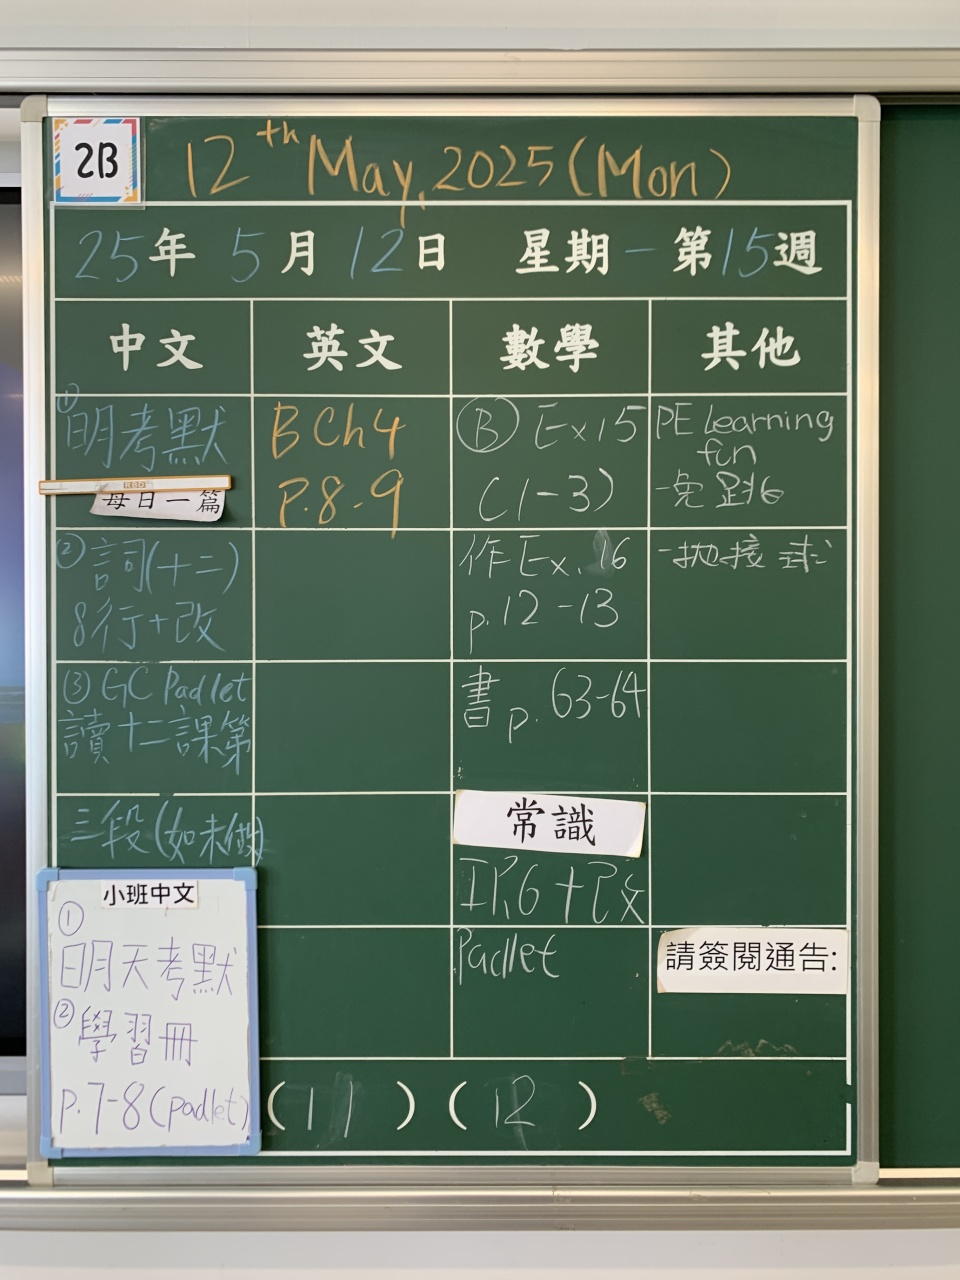 2B
12th May, 2025 (Mon)
25年 5月 12日 星期一 第15週
中文 英文 數學 其他
① 明考默
每日一篇
② 詞(十二)
8行+改
③ GC Padlet
讀十二課第
三段(如未做)
B Ch4
P.8-9
Ⓑ Ex15
(1-3)
作 Ex. 16
p.12-13
書 p. 63-64
常識
+改
Padlet
PE learning
fun
-兔跳
-拋接球
請簽閱通告:
小班中文
①
明天考默
② 學習冊
p.7-8 (padlet)
(11) (12)